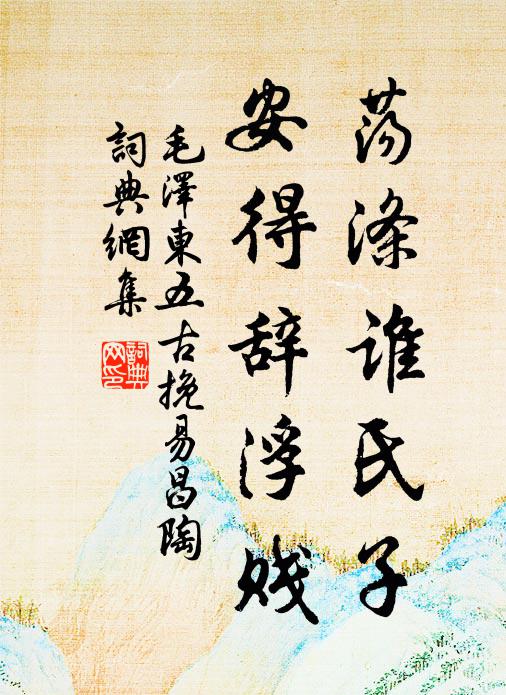 荡涤谁氏子
安得辞浮贱
毛澤東五古挽易昌陶
詞典網集
詞典網印